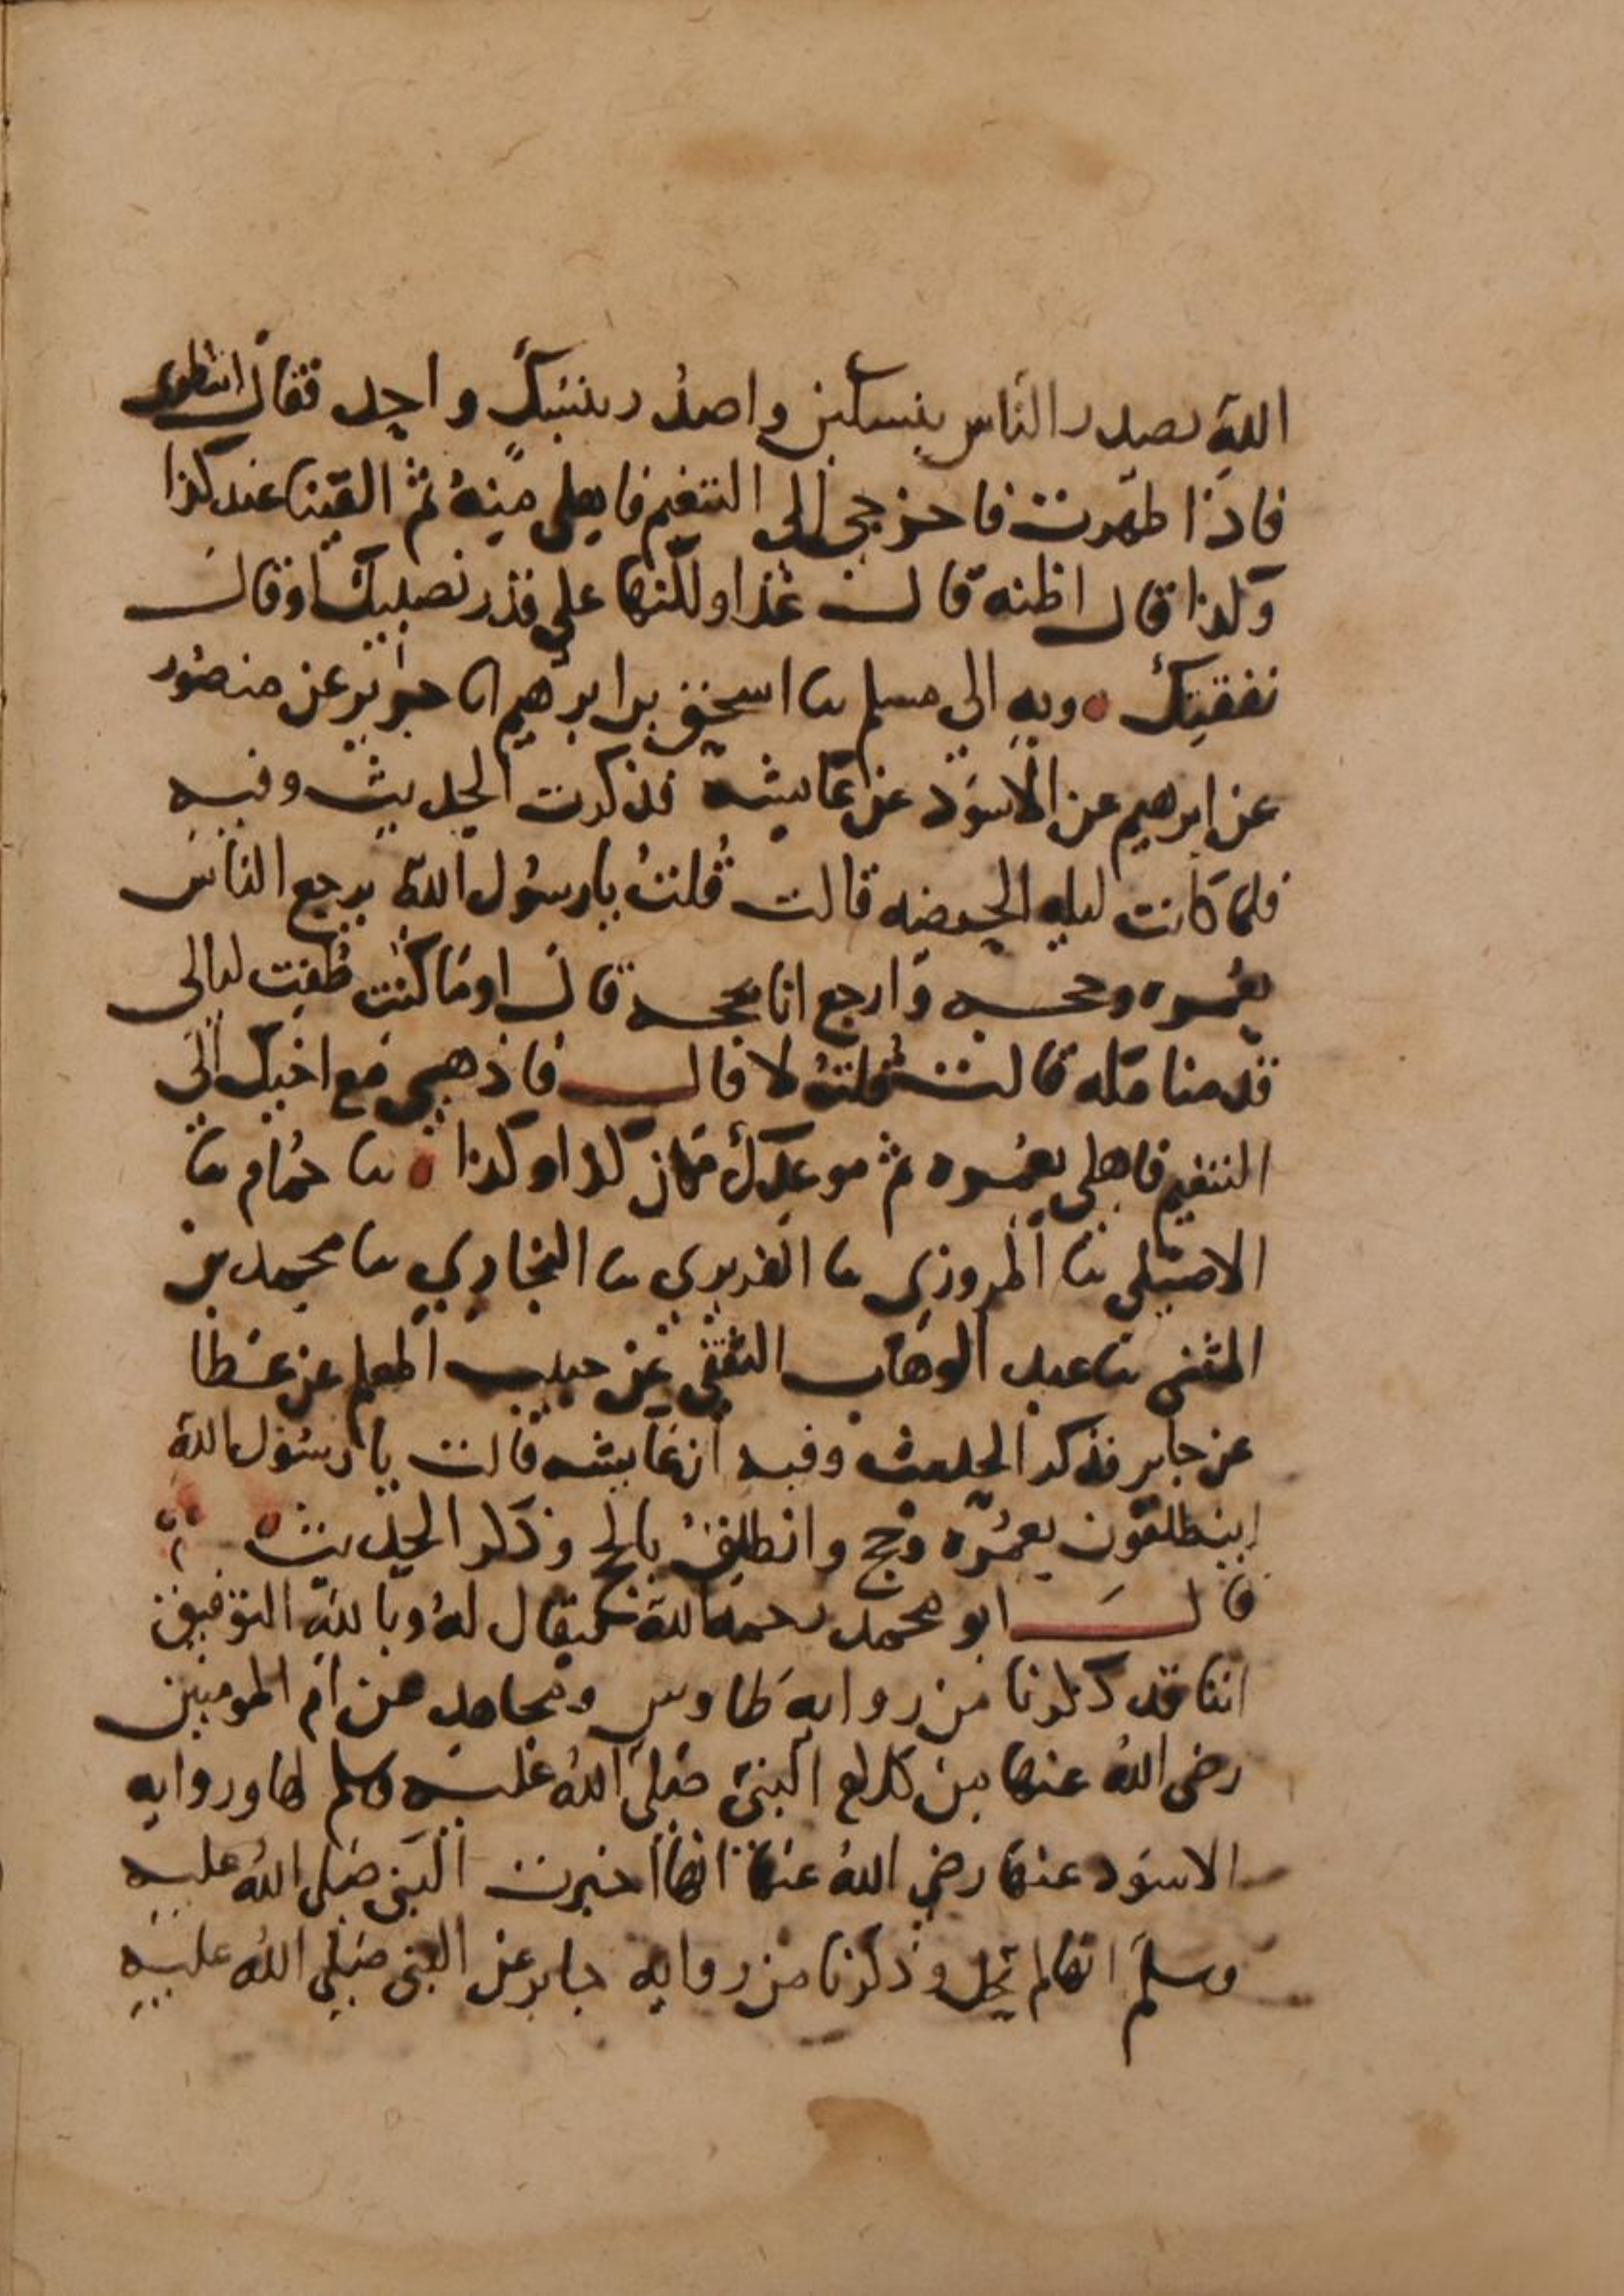 الله يصدر الناس بنسكين واصدر بنسك واحد فقال انتظرى
فاذا طهرت فاخرجي الى التنعيم فاهلي منه ثم القينا عند كذا
وكذا قال اظنه قالت غدا ولكنها على قدر نصبك او قال
نفقتك ه وبه الى مسلم نا اسحق بن ابرهيم انا جرير عن منصور
عن ابرهيم عن الاسود عن عايشه فذكرت الحديث وفيه
فلما كانت ليله الحصبه قالت قلت يا رسول الله يرجع الناس
بعمره وحجه وارجع انا بحجه قال او ما كنت طفت ليالي
قدمنا مكه قالت قلت لا قال فاذهبي مع اخيك الى
التنعيم فاهلي بعمره ثم موعدك مكان كذا وكذا ه نا حمام نا
الاصيلي نا المروزي نا الفربري نا البخاري نا محمد بن
المثنى نا عبد الوهاب الثقفي عن حبيب المعلم عن عطا
عن جابر فذكر الحديث وفيه ان عايشه قالت يا رسول الله
اينطلقون بعمره وحج وانطلق بالحج وذكر الحديث ه
قال ابو محمد رحمه الله فيقال له وبالله التوفيق
اننا قد ذكرنا من روايه طاوس ومجاهد عن ام المومنين
رضى الله عنها من كلام النبي صلى الله عليه وسلم لها وروايه
الاسود عنها رضي الله عنها انها اخبرت النبي صلى الله عليه
وسلم انها لم تحل وذكرنا من روايه جابر عن النبي صلى الله عليه